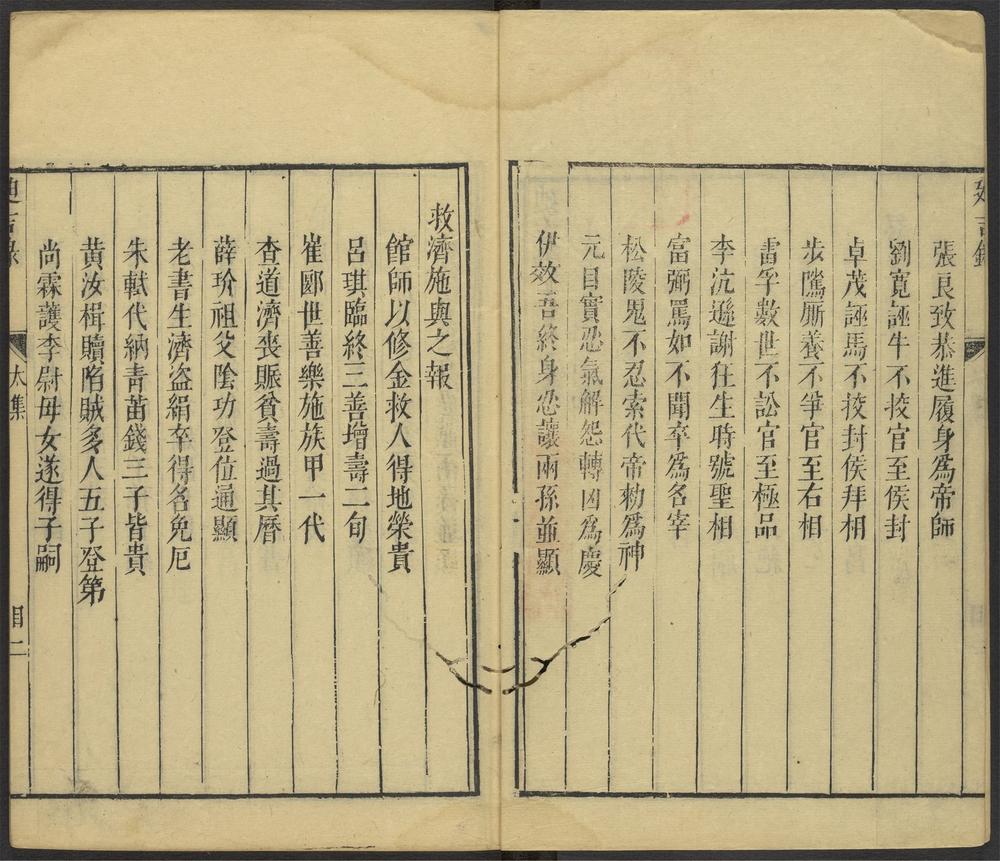 張良致恭進履身爲帝師
劉寬誣牛不挍官至侯封
卓茂誣馬不挍封侯拜相
步隲厮養不爭官至右相
雷孚數世不訟官至極品
李沆遜謝狂生時號聖相
富弼罵如不聞卒爲名宰
松陵鬼不忍索代帝勑爲神
元自實忍氣解怨轉凶爲慶
伊效吾終身忍讓兩孫並顯
救濟施與之報
館師以修金救人得地榮貴
呂琪臨終三善增壽二旬
崔郾世善樂施族甲一代
查道濟喪賑貧壽過其曆
薛玠祖父陰功登位通顯
老書生濟盜絹卒得名免厄
朱軾代納青苗錢三子皆貴
黃汝楫贖陷賊多人五子登第
尚霖護李尉母女遂得子嗣
迪吉錄
太集
目二